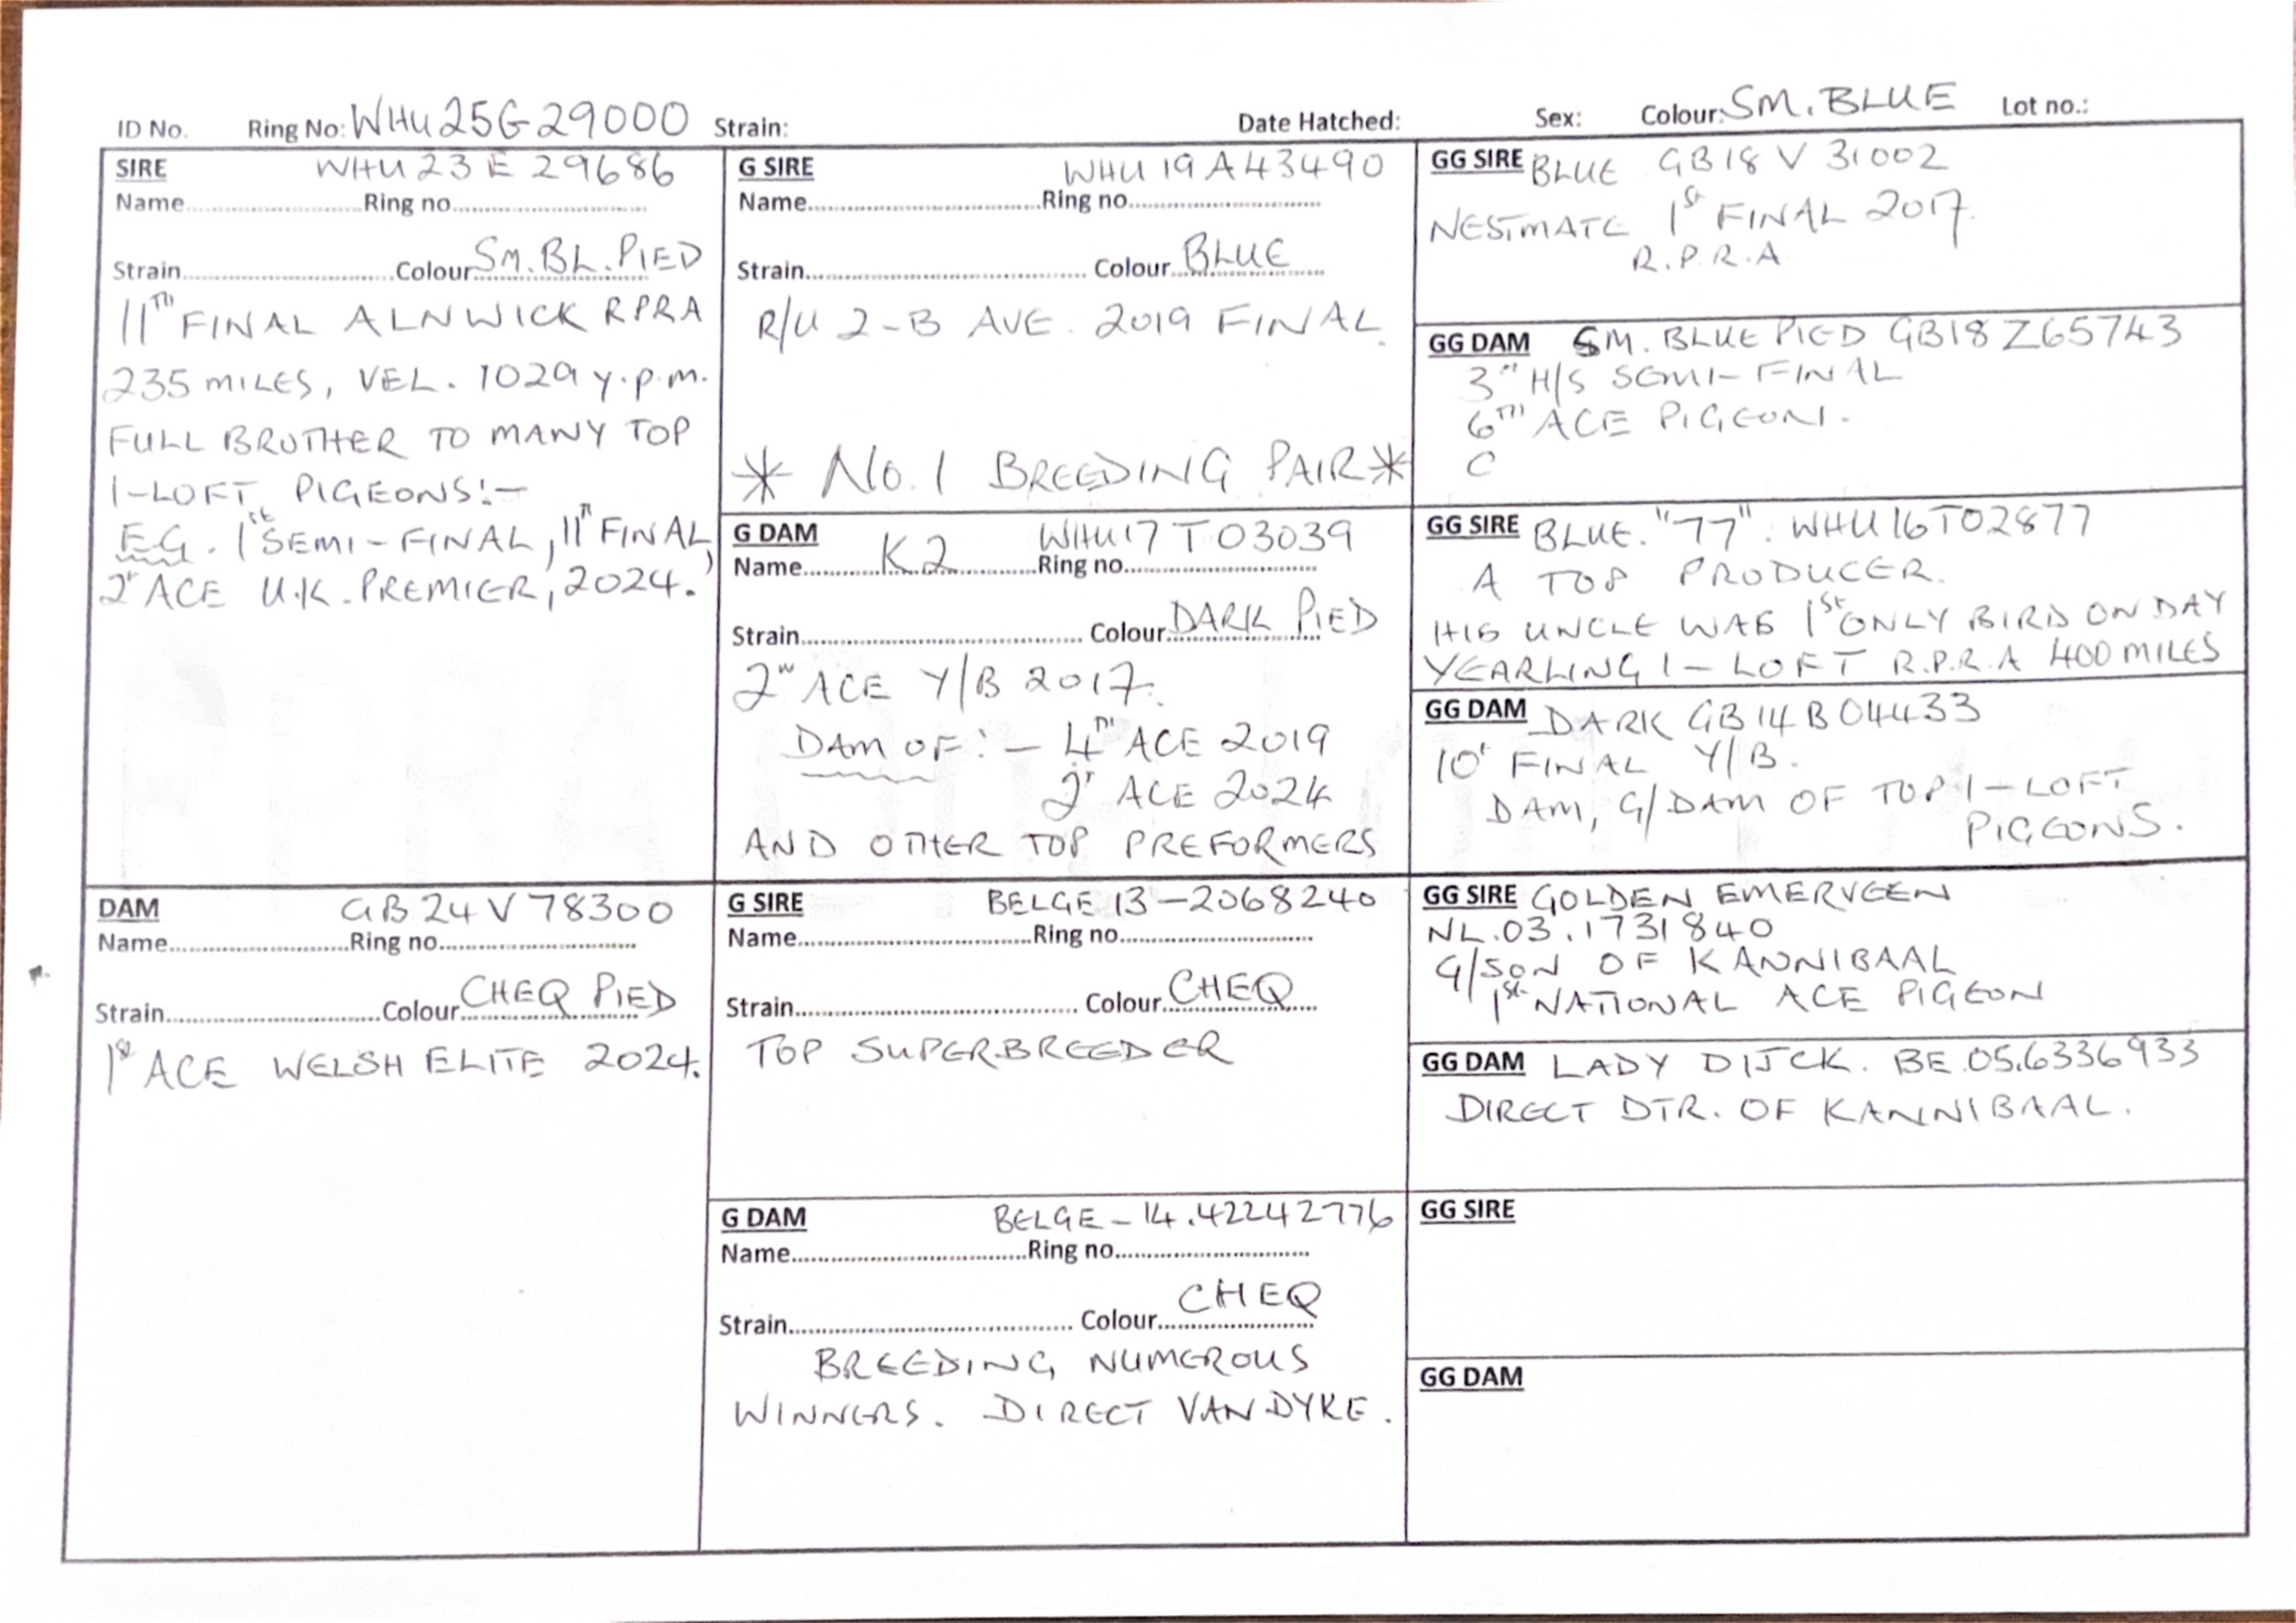 ID No. Ring No: WHU25G29000 Strain: Date Hatched: Sex: Colour: SM. BLUE Lot no.:
SIRE WHU 23 E 29686
Name Ring no
Strain Colour SM. BL. PIED
11TH FINAL ALNWICK RPRA
235 MILES, VEL. 1029 y.p.m.
FULL BROTHER TO MANY TOP
1-LOFT PIGEONS:-
E.G. 1st SEMI-FINAL, 11th FINAL,
2nd ACE U.K. PREMIER, 2024.
DAM GB 24 V 78300
Name Ring no
Strain Colour CHEQ PIED
1st ACE WELSH ELITE 2024.
G SIRE WHU 19 A 43490
Name Ring no
Strain Colour BLUE
R/U 2-B AVE. 2019 FINAL.
* No. 1 BREEDING PAIR *
G DAM WHU 17 T 03039
Name K2 Ring no
Strain Colour DARK PIED
2nd ACE Y/B 2017.
DAM OF:- 4TH ACE 2019
2nd ACE 2024
AND OTHER TOP PREFORMERS
G SIRE BELGE 13-2068240
Name Ring no
Strain Colour CHEQ
TOP SUPER.BREEDER
G DAM BELGE-14.42242776
Name Ring no
Strain Colour CHEQ
BREEDING NUMEROUS
WINNERS. DIRECT VAN DYKE.
GG SIRE BLUE GB 18 V 31002
NESTMATE 1st FINAL 2017.
R.P.R.A
GG DAM SM. BLUE PIED GB18 Z65743
3rd H/S SEMI-FINAL
6TH ACE PIGEON.
C
GG SIRE BLUE. "77". WHU 16T02877
A TOP PRODUCER.
HIS UNCLE WAS 1st ONLY BIRD ON DAY
YEARLING 1-LOFT R.P.R.A 400 MILES
GG DAM DARK GB 14 B 04433
10th FINAL Y/B.
DAM, G/DAM OF TOP 1-LOFT
PIGEONS.
GG SIRE GOLDEN EMERVEEN
NL.03.1731840
G/SON OF KANNIBAAL
1st NATIONAL ACE PIGEON
GG DAM LADY DIJCK. BE.05.6336933
DIRECT DTR. OF KANNIBAAL.
GG SIRE
GG DAM